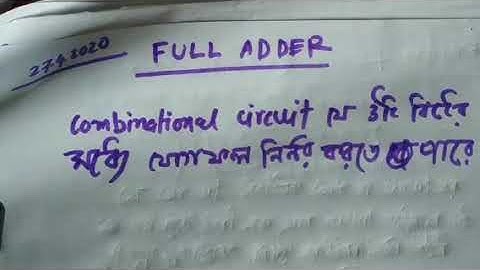 27.4.2020
FULL ADDER
Combinational circuit যে ৩টি বিটের
মধ্যে যোগফল নির্নয় করতে পারে